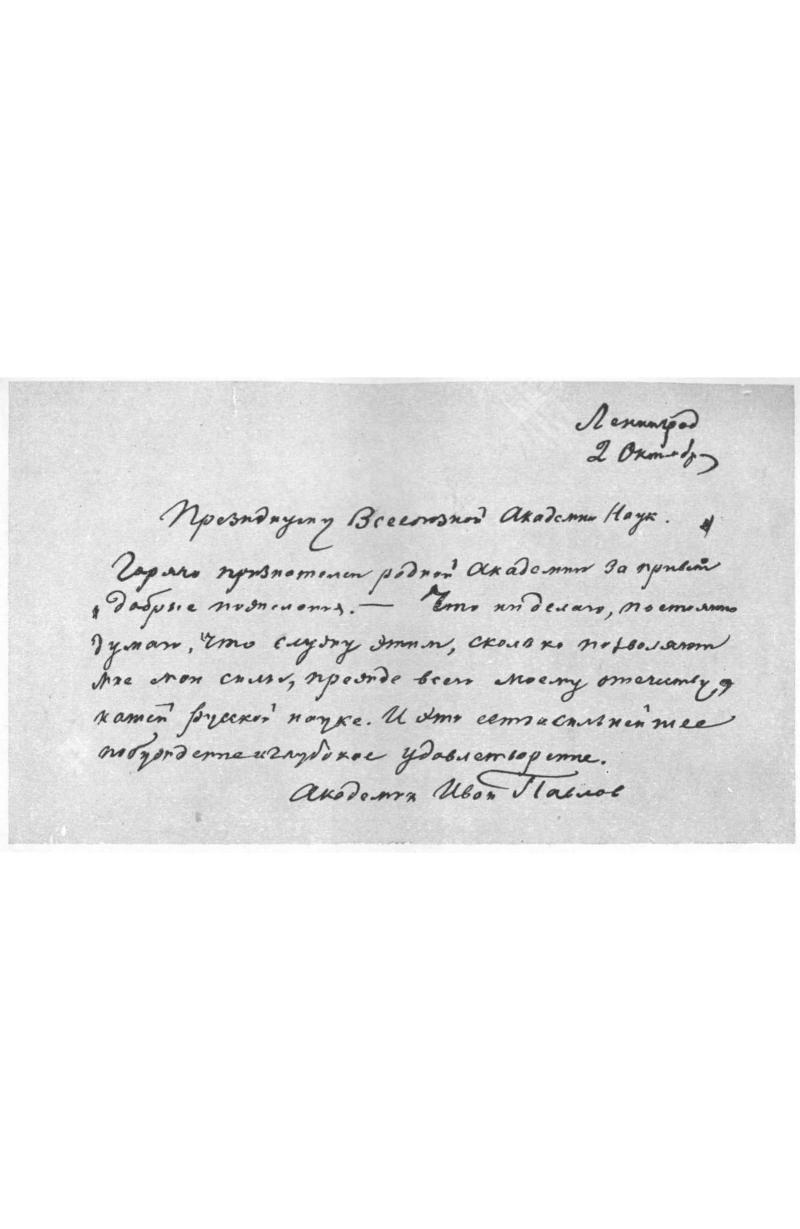 Ленинград
2 Октября
Президиуму Всесоюзной Академии Наук.
Горячо признателен родной Академии за привет и
добрые пожелания. — Что ни делаю, постоянно
думаю, что служу этим, сколько позволяют
мне мои силы, прежде всего моему отечеству,
нашей русской науке. И это есть и сильнейшее
побуждение и глубокое удовлетворение.
Академик Иван Павлов